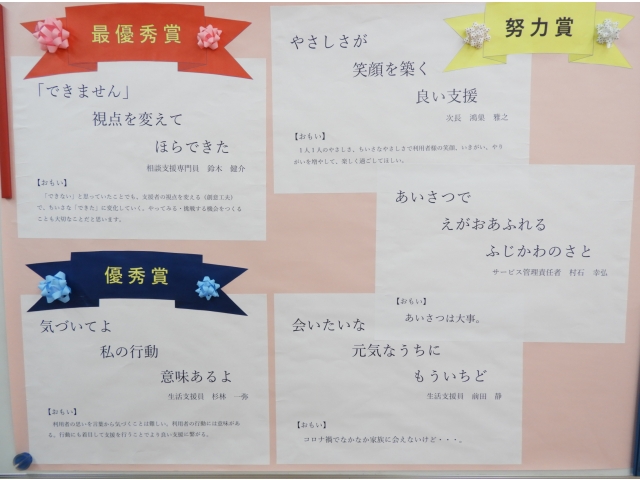 最優秀賞
「できません」
視点を変えて
ほらできた
相談支援専門員 鈴木 健介
【おもい】
「できない」と思っていたことでも、支援者の視点を変える(創意工夫)
で、ちいさな「できた」に変化していく。やってみる・挑戦する機会をつくる
ことも大切なことだと思います。
優秀賞
気づいてよ
私の行動
意味あるよ
生活支援員 杉林 一弥
【おもい】
利用者の思いを言葉から気づくことは難しい。利用者の行動には意味があ
る。行動にも着目して支援を行うことでより良い支援に繋がる。
努力賞
やさしさが
笑顔を築く
良い支援
次長 鴻巣 雅之
【おもい】
1人1人のやさしさ。ちいさなやさしさで利用者様の笑顔、いきがい、やり
がいを増やして、楽しく過ごしてほしい。
あいさつで
えがおあふれる
ふじかわのさと
サービス管理責任者 村石 幸弘
【おもい】
あいさつは大事。
会いたいな
元気なうちに
もういちど
生活支援員 前田 静
【おもい】
コロナ禍でなかなか家族に会えないけど・・・。